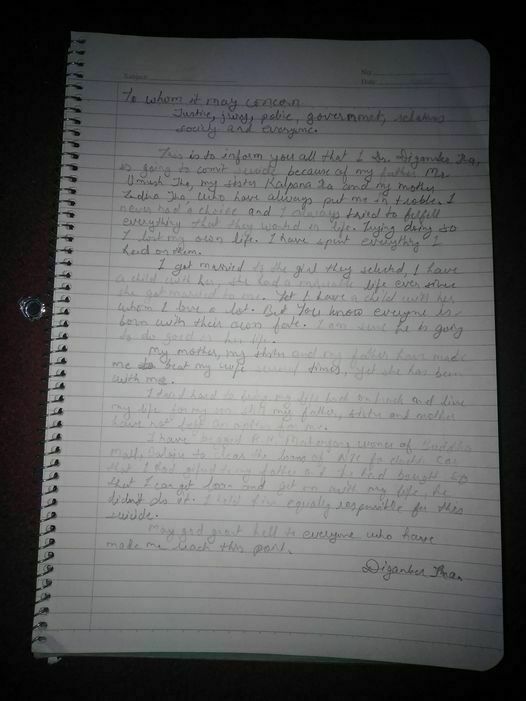 Subject
No.
Date
To whom it may concern
Justice, jury, police, governmet, relatives
society and everyone.
This is to inform you all that I Dr. Diganber Jha,
is going to comit suicide because of my father Mr.
Umesh Jha, my sister Kalpana Jha and my mother
Indha Jha, who have always put me in trouble. I
never had a choice and I always tried to fulfell
everything that they wanted in life. Trying doing so
I lost my own life. I have spent everything I
had on them.
I got married to the girl they selected, I have
a child with her, she had a miserable life ever since
she got married to me. Yet I have a child with her
whom I love a lot. But you know everyone is
born with their own fate. I am sure he is going
to do good in his life.
My mother, my sister and my father have made
me beat my wife several times, yet she has been
with me.
I tried hard to bring my life back on track and live
my life for my son still my father, sister and mother
have not
I have begged of
Mall, to clear the loans of
that I had my father and he had bought so
that I can get loan and get on with my life, he
didn't do it. I hold him equally responsible for this
suicide.
May god grant hell to everyone who have
made me reach this point.
Diganber Jha